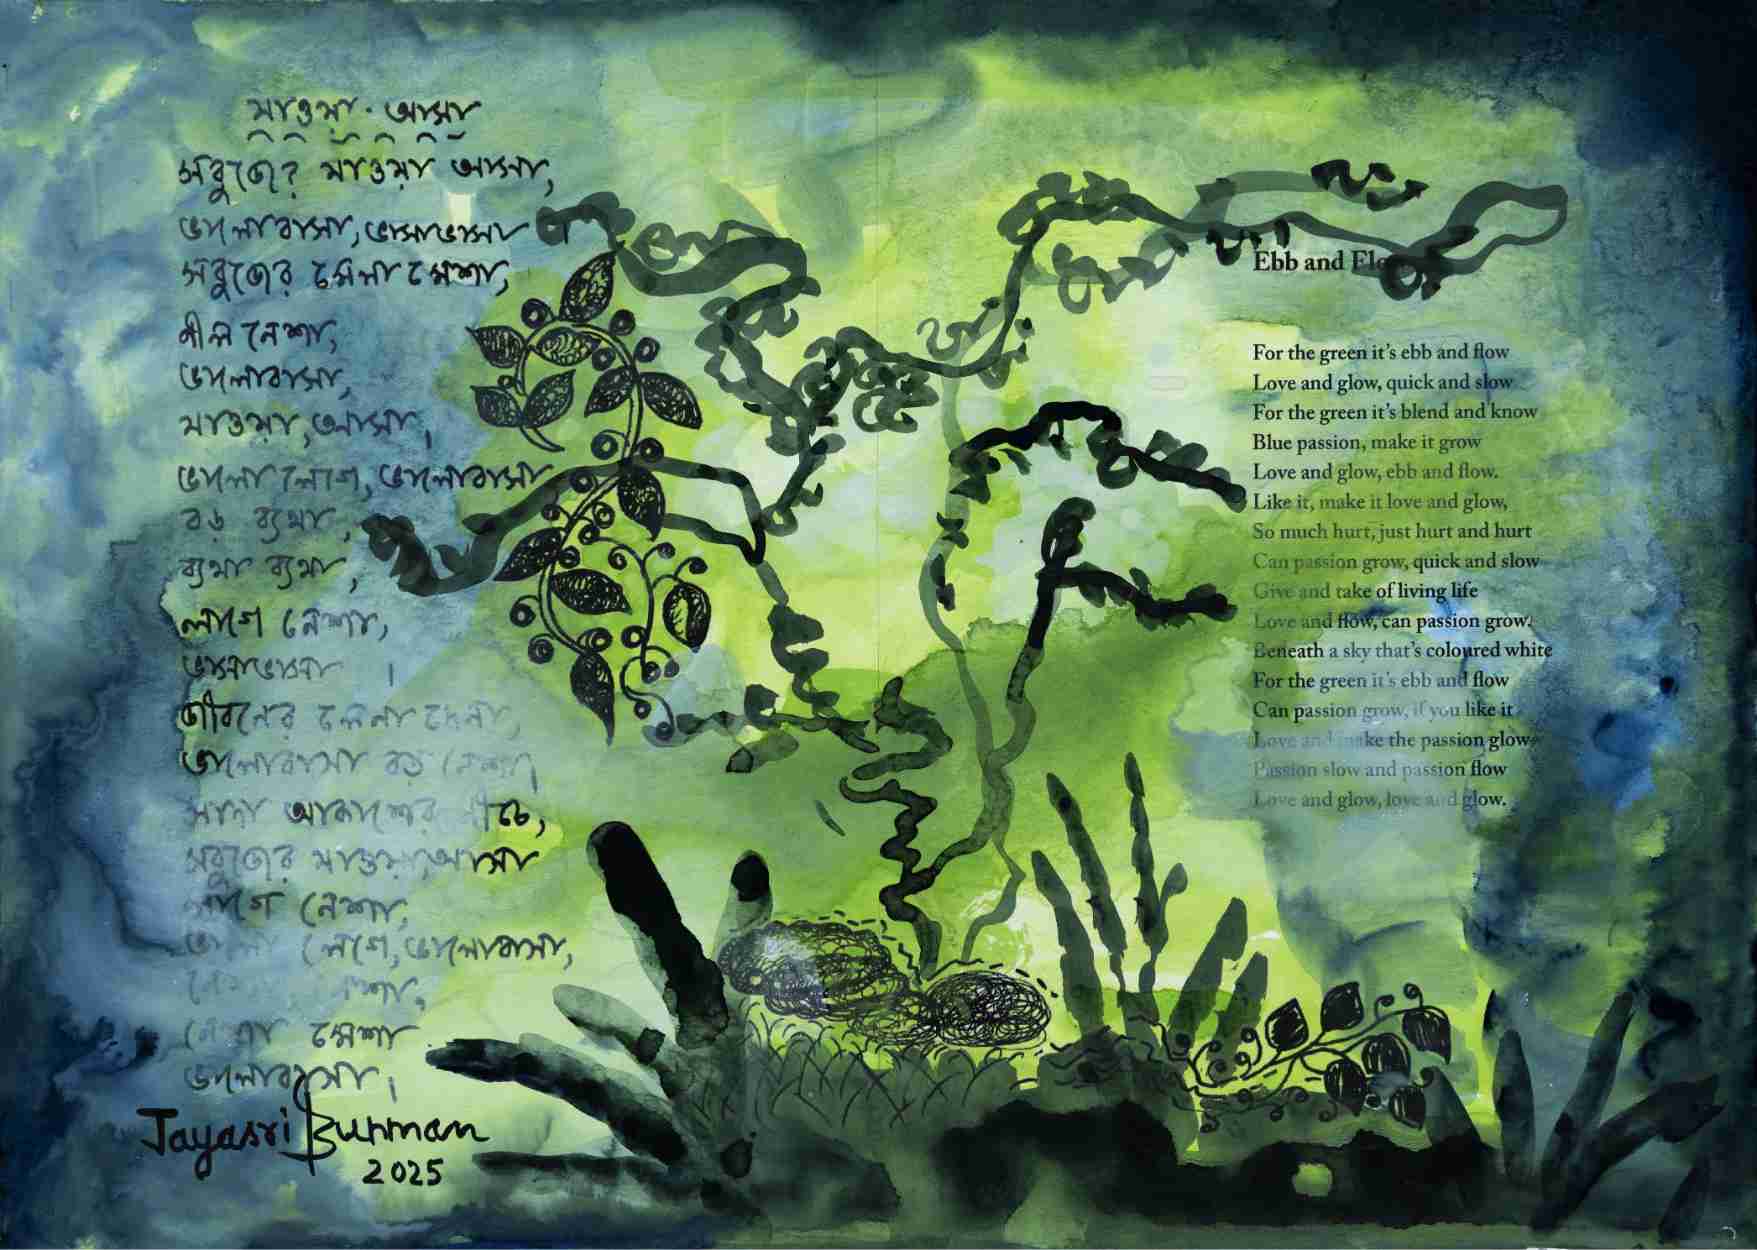 যাওয়া · আসা
সবুজের যাওয়া আসা,
ভালোবাসা, ভাসাভাসা
সবুজের মেলা মেশা,
নীল নেশা,
ভালোবাসা,
যাওয়া, আসা,
ভালো লেগে, ভালোবাসা
বড় ব্যথা,
ব্যথা ব্যথা,
লাগে নেশা,
ভাসাভাসা ।
জীবনের দেনা
ভালোবাসা বড় নেশা।
সাদা আকাশের নীচে,
সবুজের যাওয়া, আসা
লাগে নেশা,
ভালো লেগে, ভালোবাসা,
নেশা মেশা
ভালোবাসা।
Jayasri Burman
2025
Ebb and Flow
For the green it's ebb and flow
Love and glow, quick and slow
For the green it's blend and know
Blue passion, make it grow
Love and glow, ebb and flow.
Like it, make it love and glow,
So much hurt, just hurt and hurt
Can passion grow, quick and slow
Give and take of living life
Love and flow, can passion grow.
Beneath a sky that's coloured white
For the green it's ebb and flow
Can passion grow, if you like it
Love and make the passion glow
Passion slow and passion flow
Love and glow, love and glow.